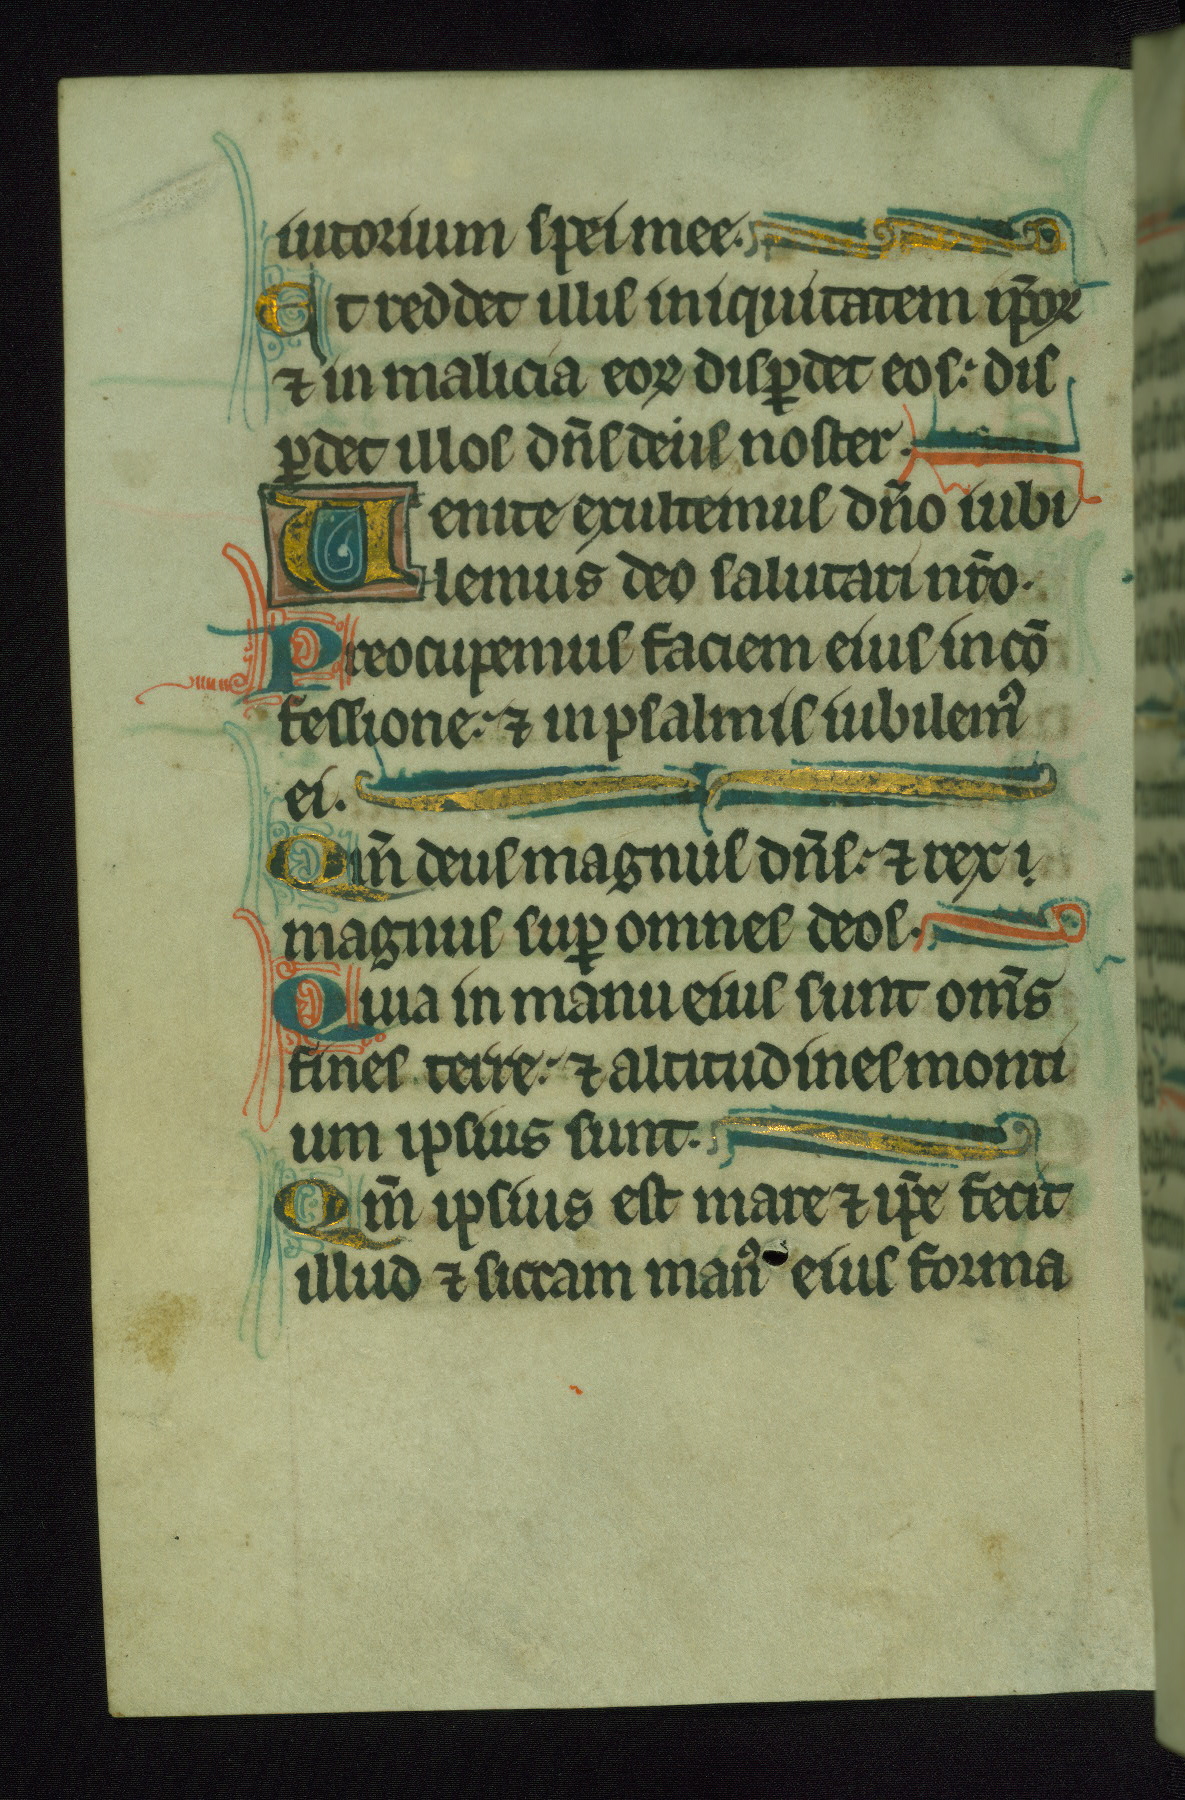 iutorium spei mee.
Et reddet illis iniquitatem ip̄oꝝ
⁊ in malicia eoꝝ disꝑdet eos: dis
ꝑdet illos dn̄s deus noster.
Uenite exultemus dn̄o iubi
lemus deo salutari nr̄o.
Preocupemus faciem eius in cō
fessione: ⁊ in psalmis iubilem᷒
ei.
Qm̄ deus magnus dn̄s: ⁊ rex
magnus suꝑ omnes deos.
Quia in manu eius sunt om̄s
fines terre: ⁊ altitudines monti
um ipsius sunt.
Qm̄ ipsius est mare ⁊ ip̄e fecit
illud ⁊ siccam man᷒ eius forma